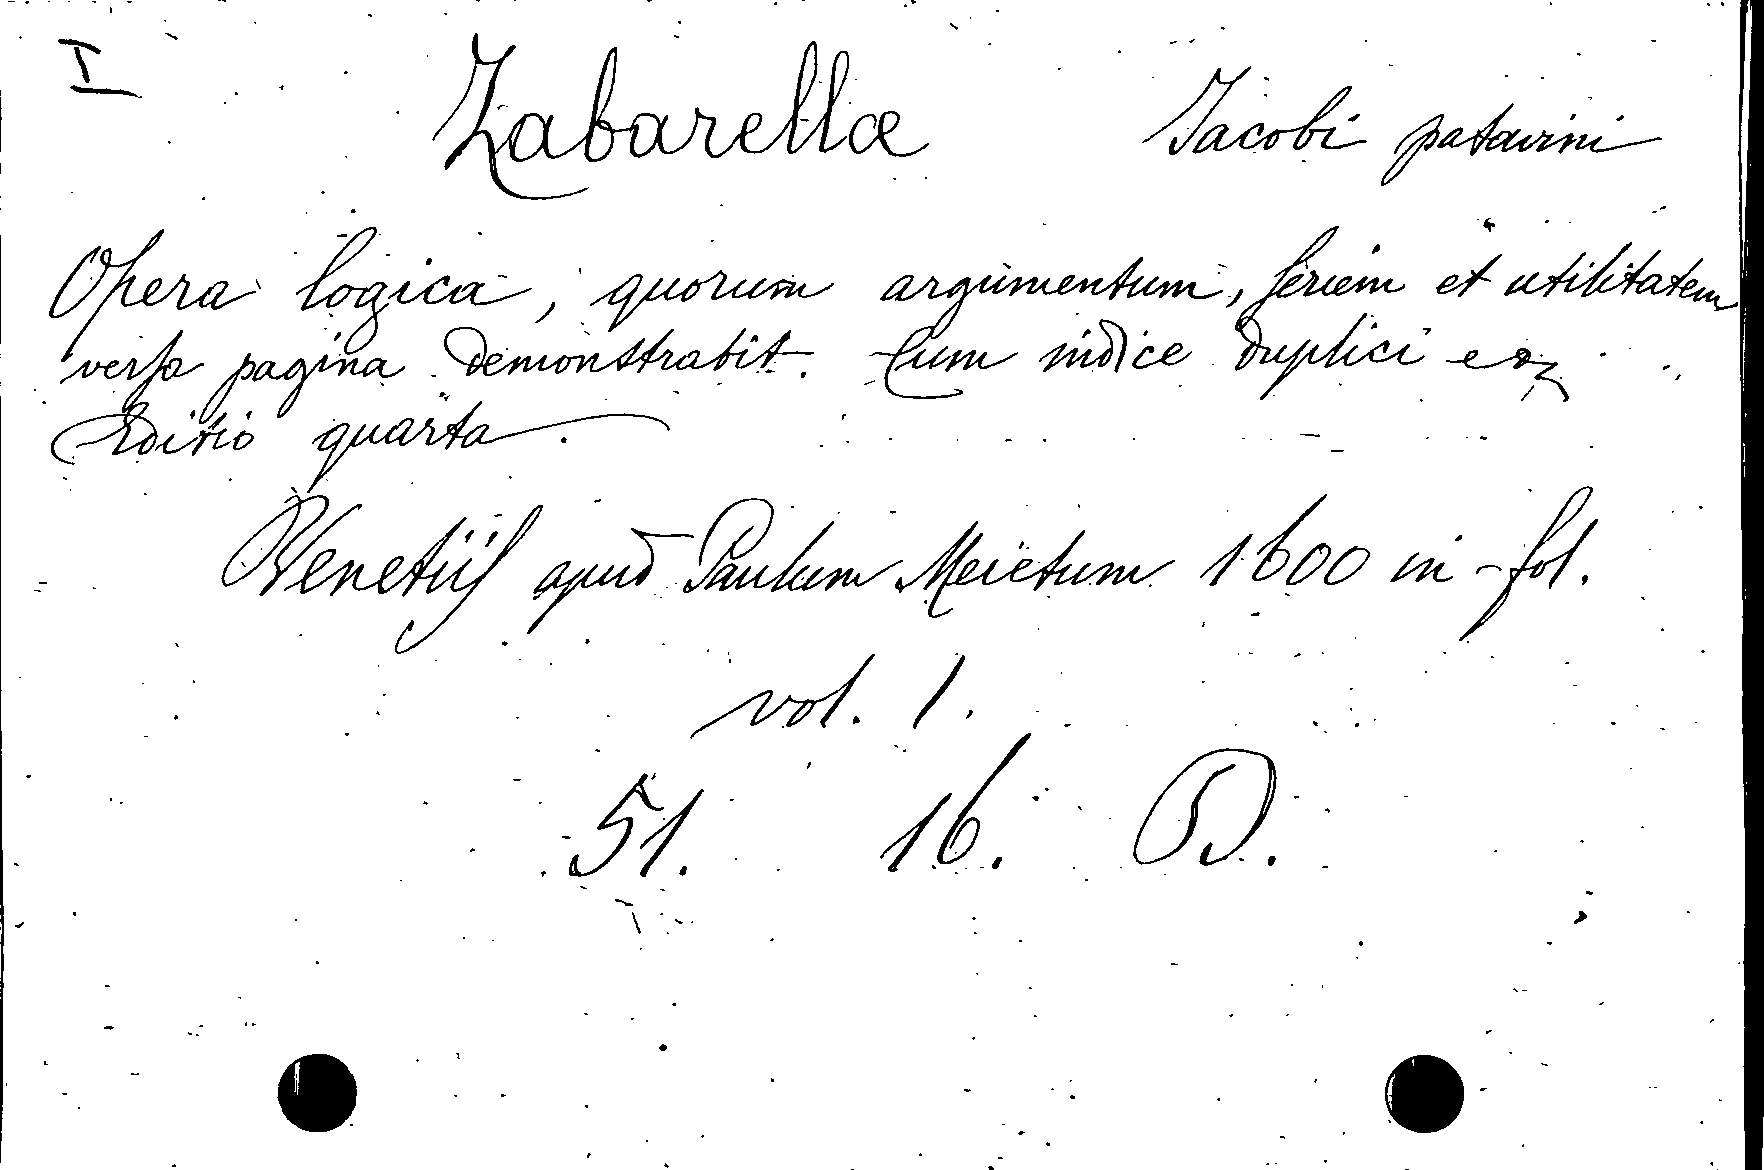 I
Zabarellæ Jacobi patavini
Opera logica, quorum argumentum, seriem et utilitatem
versa pagina demonstrabit. Cum indice duplici
Editio quarta.
Venetiis apud Paulum Meietum 1600 in-fol.
vol. 1.
51. 16. D.